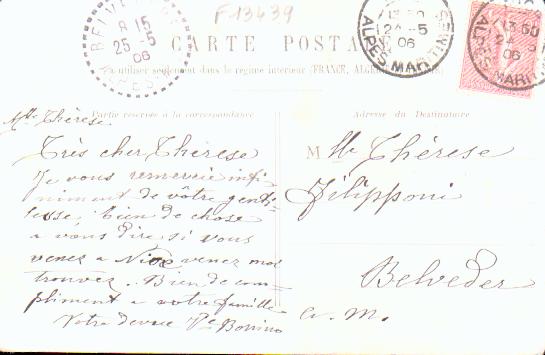 F-13439
BELVEDERE
8 15
25-5
06
ALPES
13 50
24-5
06
ALPES MARITIMES
13 50
2 -5
06
ALPES MARITI
CARTE POSTA
utiliser seulement dans le régime intérieur (FRANCE, ALGÉ
Partie réservée à la correspondance
Adresse du Destinataire
Mlle Thérèse
Très cher Thérèse
Je vous remercie infi
niment de vôtre genti
lesse, bien de chose
a vous dire si vous
venez a Nice venez moi
trouvez. Bien de com-
pliment a votre famille
Votre devouée Vve Bonino
M lle Thérèse
Filipponi
Belveder
A. M.